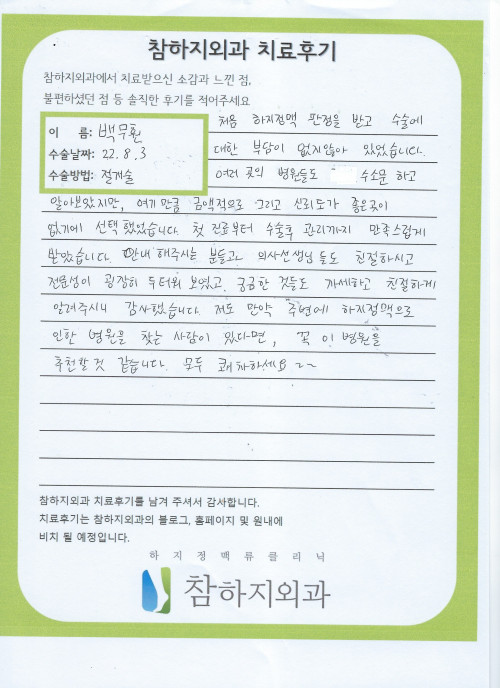 참하지외과 치료후기
참하지외과에서 치료받으신 소감과 느낀 점,
불편하셨던 점 등 솔직한 후기를 적어주세요
이 름: 백무환
수술날짜: 22. 8. 3
수술방법: 절개술
처음 하지정맥 판정을 받고 수술에
대한 부담이 없지않아 있었습니다.
여러 곳의 병원들도 수소문 하고
알아보았지만, 여기만큼 금액적으로 그리고 신뢰도가 좋은곳이
없기에 선택했었습니다. 첫 진료부터 수술후 관리까지 만족스럽게
받았습니다. 안내 해주시는 분들과 의사선생님들도 친절하시고
전문성이 굉장히 두터워 보였고, 궁금한 것들도 자세하고 친절하게
알려주시니 감사했습니다. 저도 만약 주변에 하지정맥으로
인한 병원을 찾는 사람이 있다면, 꼭 이 병원을
추천할것 같습니다. 모두 쾌차하세요 ~~
참하지외과 치료후기를 남겨 주셔서 감사합니다.
치료후기는 참하지외과의 블로그, 홈페이지 및 원내에
비치 될 예정입니다.
하지정맥류클리닉
참하지외과